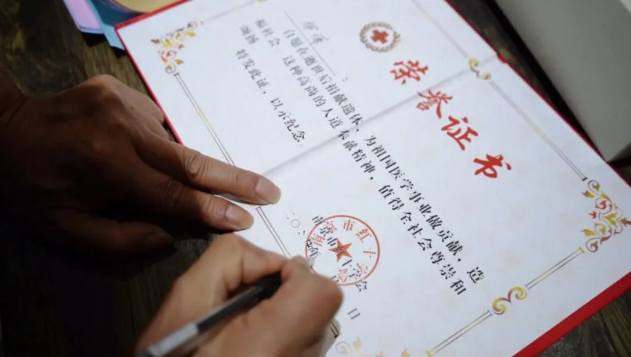 荣誉证书
：
自愿在逝世后捐献遗体，为祖国医学事业做贡献，造
福社会。这种高尚的人道奉献精神，值得全社会尊崇和
颂扬。
特发此证，以示纪念。
南京市红十字会
二〇
日